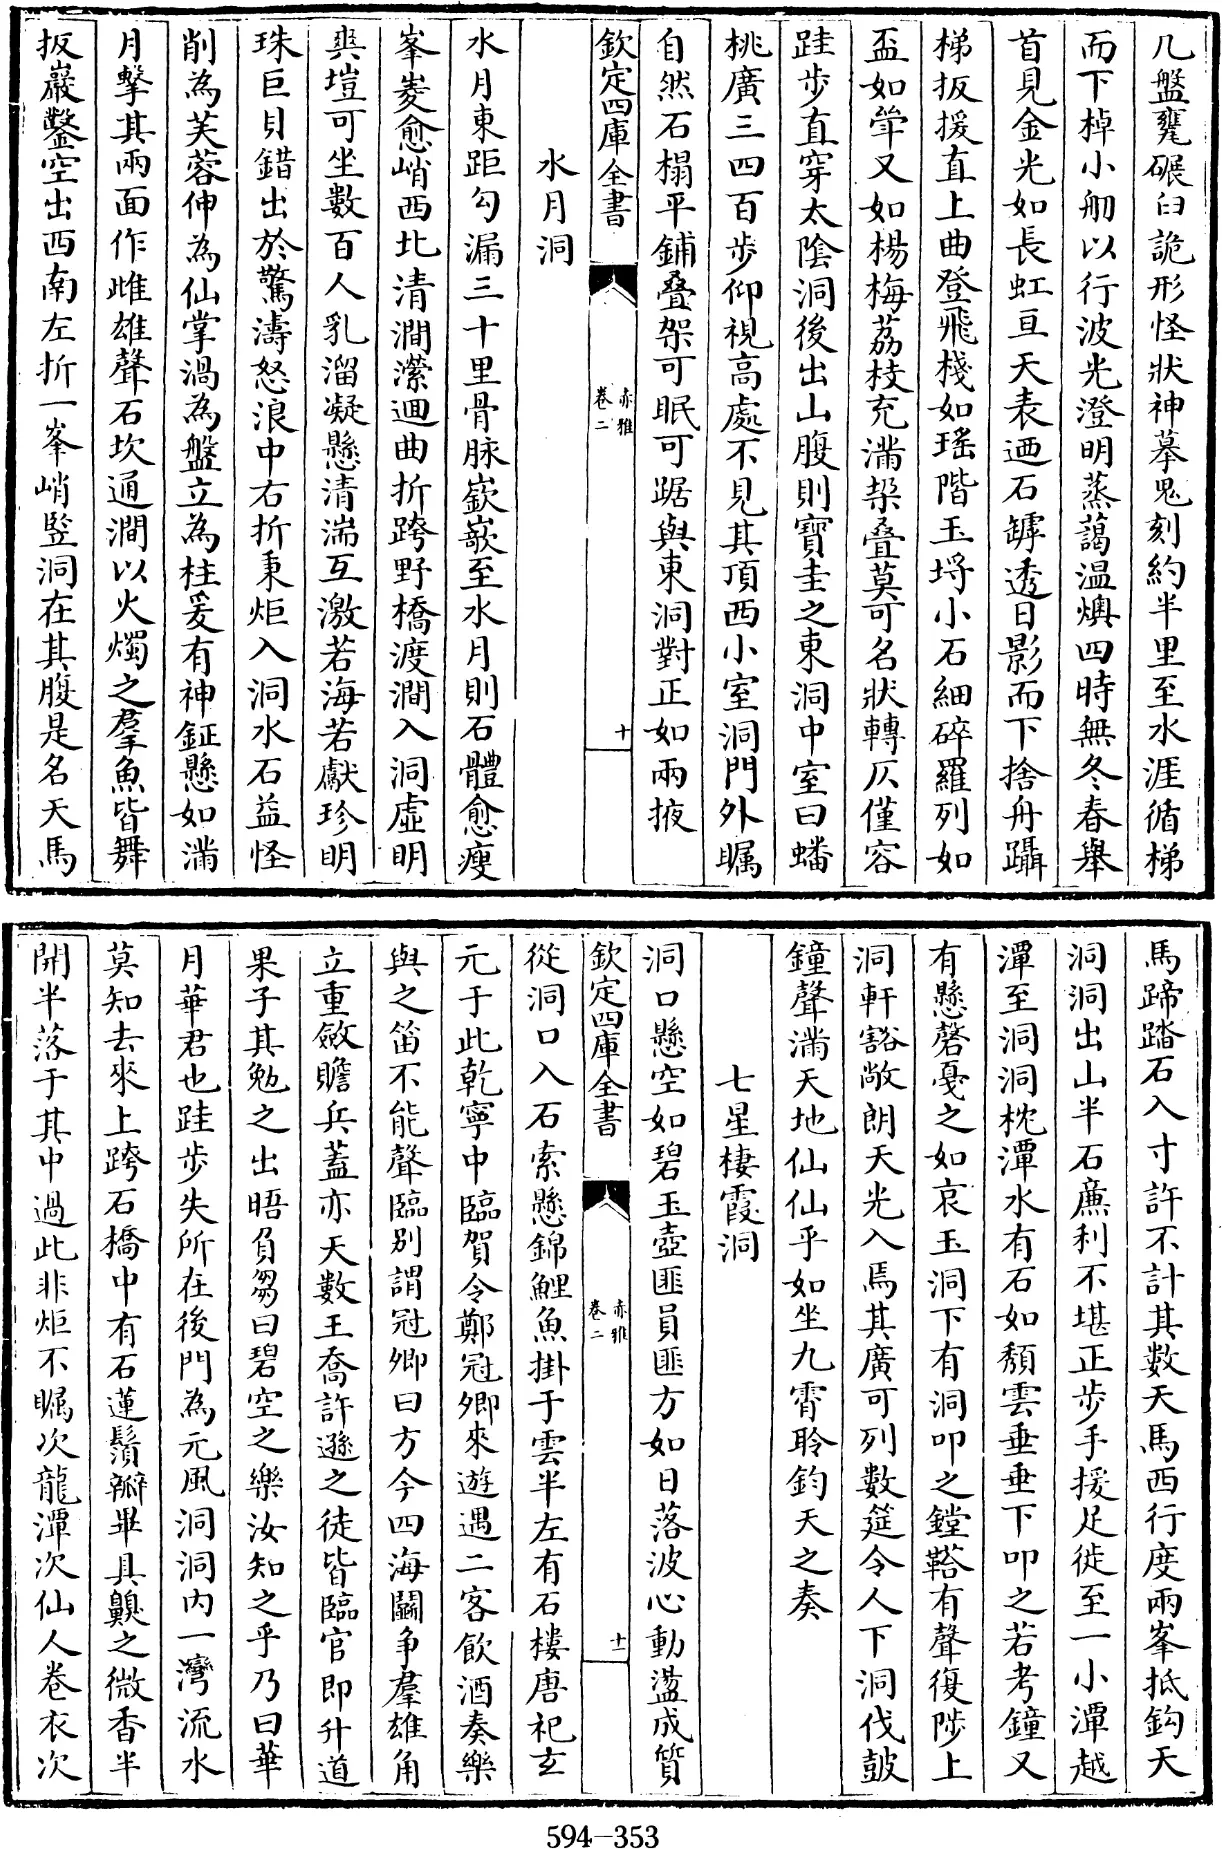 几盤甕碾臼詭形怪狀神摹鬼刻約半里至水涯循梯
而下棹小舠以行波光澄明蒸藹温燠四時無冬春舉
首見金光如長虹亘天表迺石罅透日影而下捨舟躡
梯扳援直上曲登飛棧如瑤階玉埒小石細碎羅列如
盃如斝又如楊梅荔枝充滿栔叠莫可名狀轉仄僅容
跬步直穿太陰洞後出山腹則寶圭之東洞中室曰蟠
桃廣三四百步仰視高處不見其頂西小室洞門外矚
自然石榻平鋪叠架可眠可踞與東洞對正如兩掖
欽定四庫全書
赤雅
卷二
十
水月洞
水月東距勾漏三十里骨脉嶔嶔至水月則石體愈瘦
峯崣愈峭西北清澗瀠迴曲折跨野橋渡澗入洞虛明
爽塏可坐數百人乳溜凝懸清湍互激若海若獻珍明
珠巨貝錯出於驚濤怒浪中右折秉炬入洞水石益怪
削為芙蓉伸為仙掌渦為盤立為柱爰有神鉦懸如滿
月擊其兩面作雌雄聲石坎通澗以火燭之羣魚皆舞
扳巖鑿空出西南左折一峯峭竪洞在其腹是名天馬
馬蹄踏石入寸許不計其數天馬西行度兩峯抵鈎天
洞洞出山半石亷利不堪正步手援足徙至一小潭越
潭至洞洞枕潭水有石如頹雲垂垂下叩之若考鐘又
有懸磬戞之如哀玉洞下有洞叩之鏜鞳有聲復陟上
洞軒豁敞朗天光入焉其廣可列數筵令人下洞伐鼓
鐘聲滿天地仙仙乎如坐九霄聆鈞天之奏
七星棲霞洞
洞口懸空如碧玉壺匪員匪方如日落波心動盪成質
欽定四庫全書
赤雅
卷二
十一
從洞口入石索懸錦鯉魚掛于雲半左有石樓唐祀玄
元于此乾寧中臨賀令鄭冠卿來遊遇二客飲酒奏樂
與之笛不能聲臨別謂冠卿曰方今四海鬭争羣雄角
立重斂贍兵蓋亦天數王喬許遜之徒皆臨官即升道
果子其勉之出晤負芻曰碧空之樂汝知之乎乃曰華
月華君也跬步失所在後門為元風洞洞内一灣流水
莫知去來上跨石橋中有石蓮鬚瓣畢具齅之微香半
開半落于其中過此非炬不矚次龍潭次仙人卷衣次
594-353